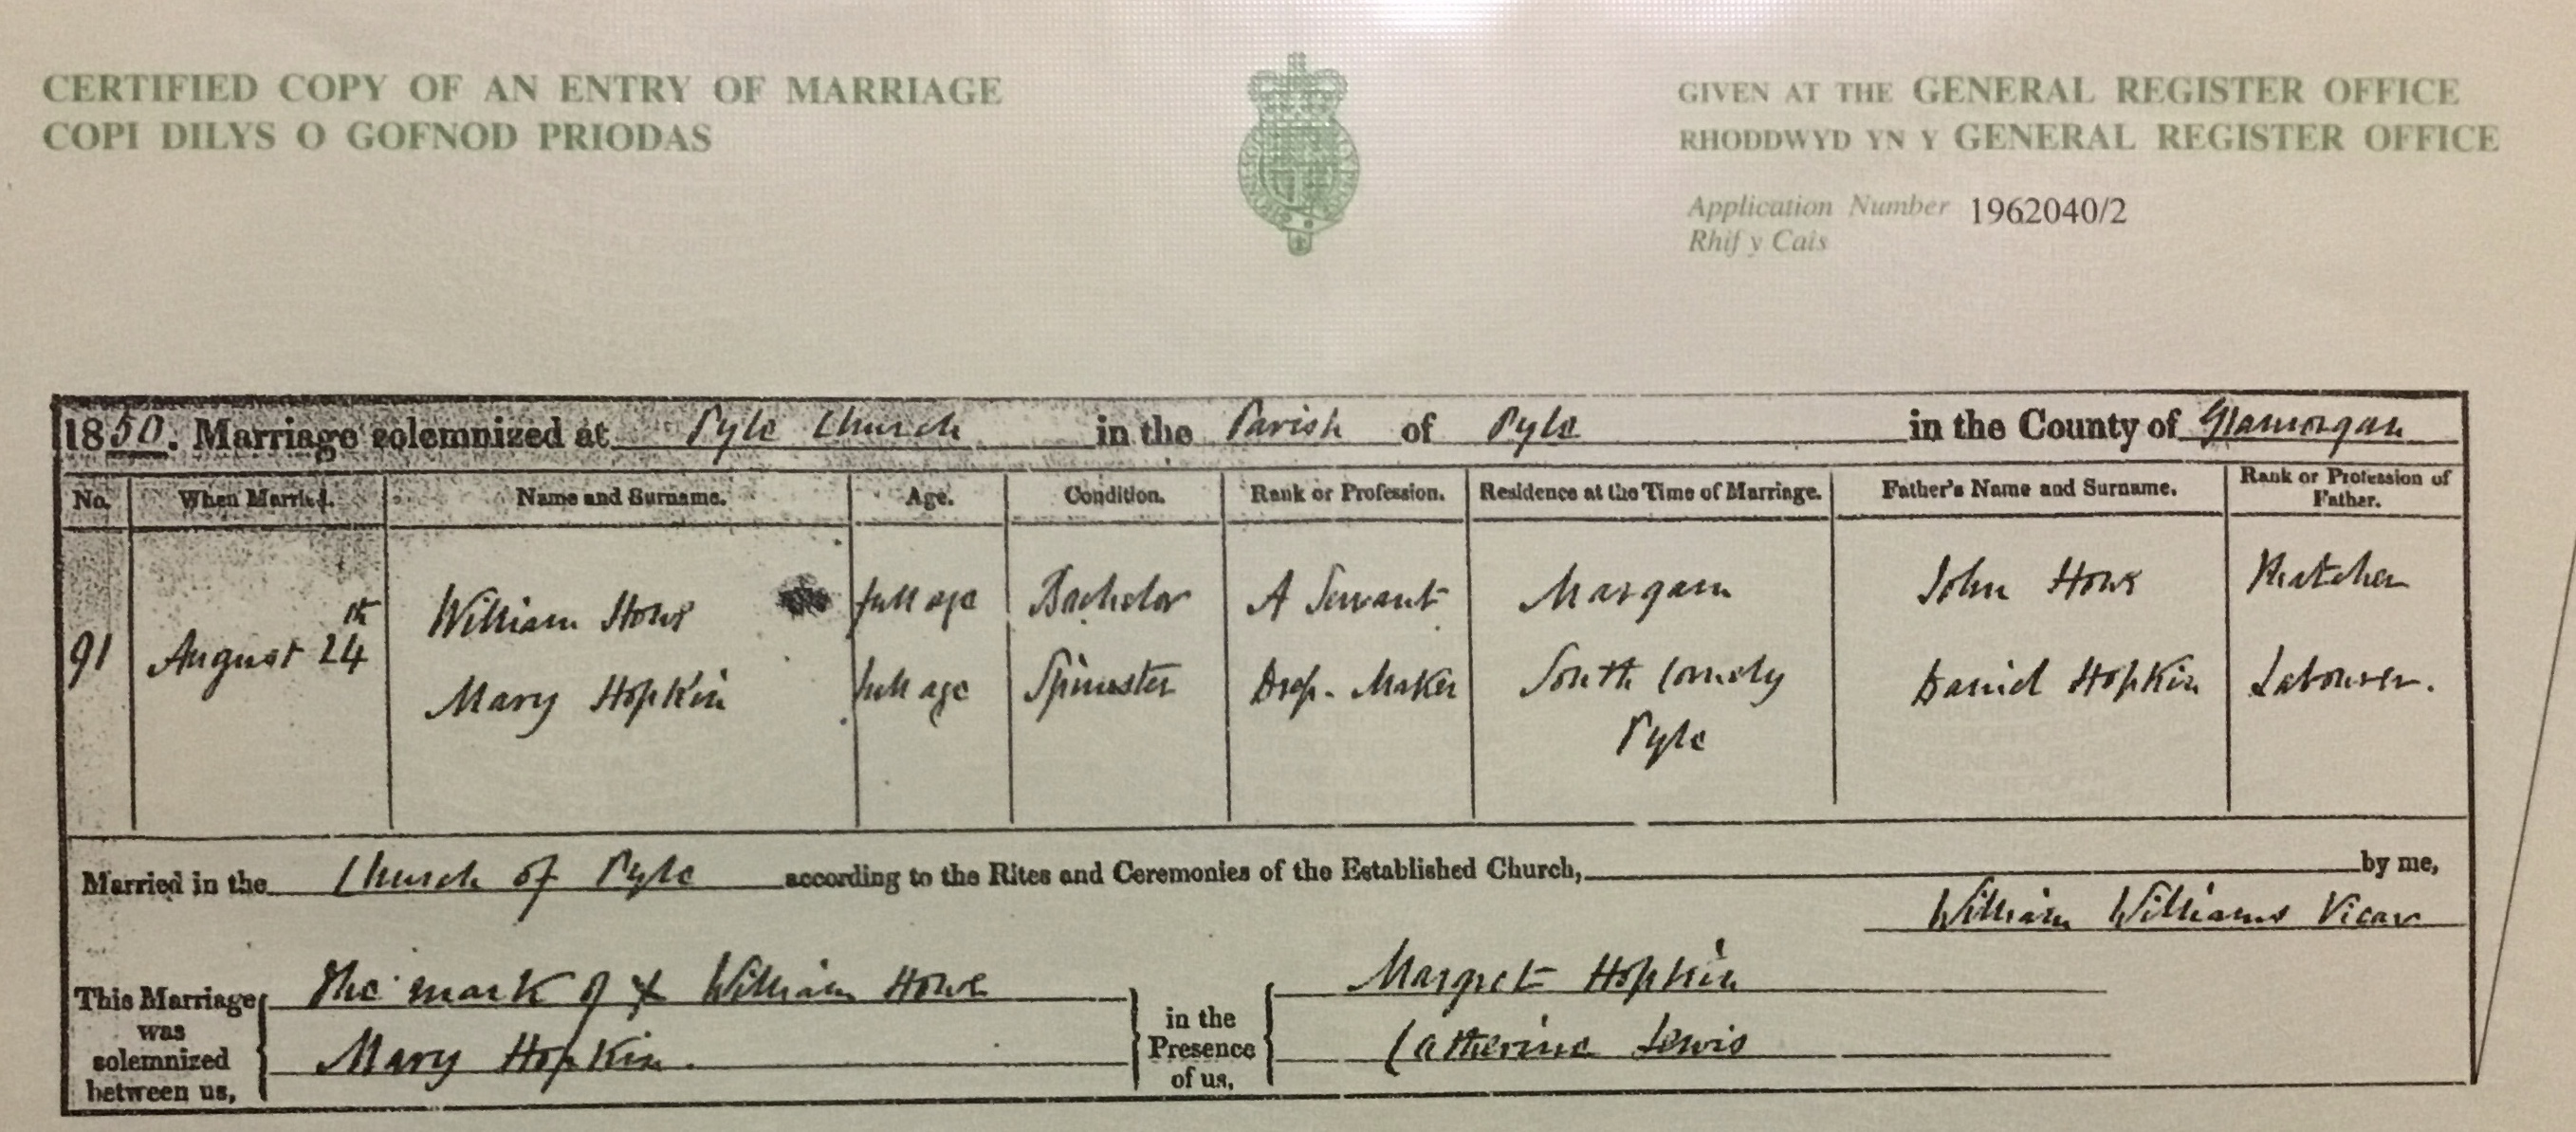 CERTIFIED COPY OF AN ENTRY OF MARRIAGE
COPI DILYS O GOFNOD PRIODAS
GIVEN AT THE GENERAL REGISTER OFFICE
RHODDWYD YN Y GENERAL REGISTER OFFICE
Application Number 1962040/2
Rhif y Cais
1850. Marriage solemnized at Pyle Church in the Parish of Pyle in the County of Glamorgan
No. When Married. Name and Surname. Age. Condition. Rank or Profession. Residence at the Time of Marriage. Father's Name and Surname. Rank or Profession of Father.
91 August 24th
William Howe full age Bachelor A Servant Margam John Howe Thatcher
Mary Hopkin full age Spinster Drep. Maker South Cornely Pyle Daniel Hopkin Labourer.
Married in the Church of Pyle according to the Rites and Ceremonies of the Established Church, by me,
William Williams Vicar
This Marriage was solemnized between us,
The mark of x William Howe
Mary Hopkin.
in the Presence of us,
Margret Hopkin
Catherine Lewis